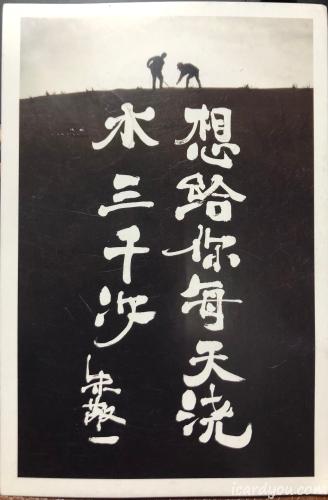 想给你每天浇
水三千次
朱敬一
icardyou.com